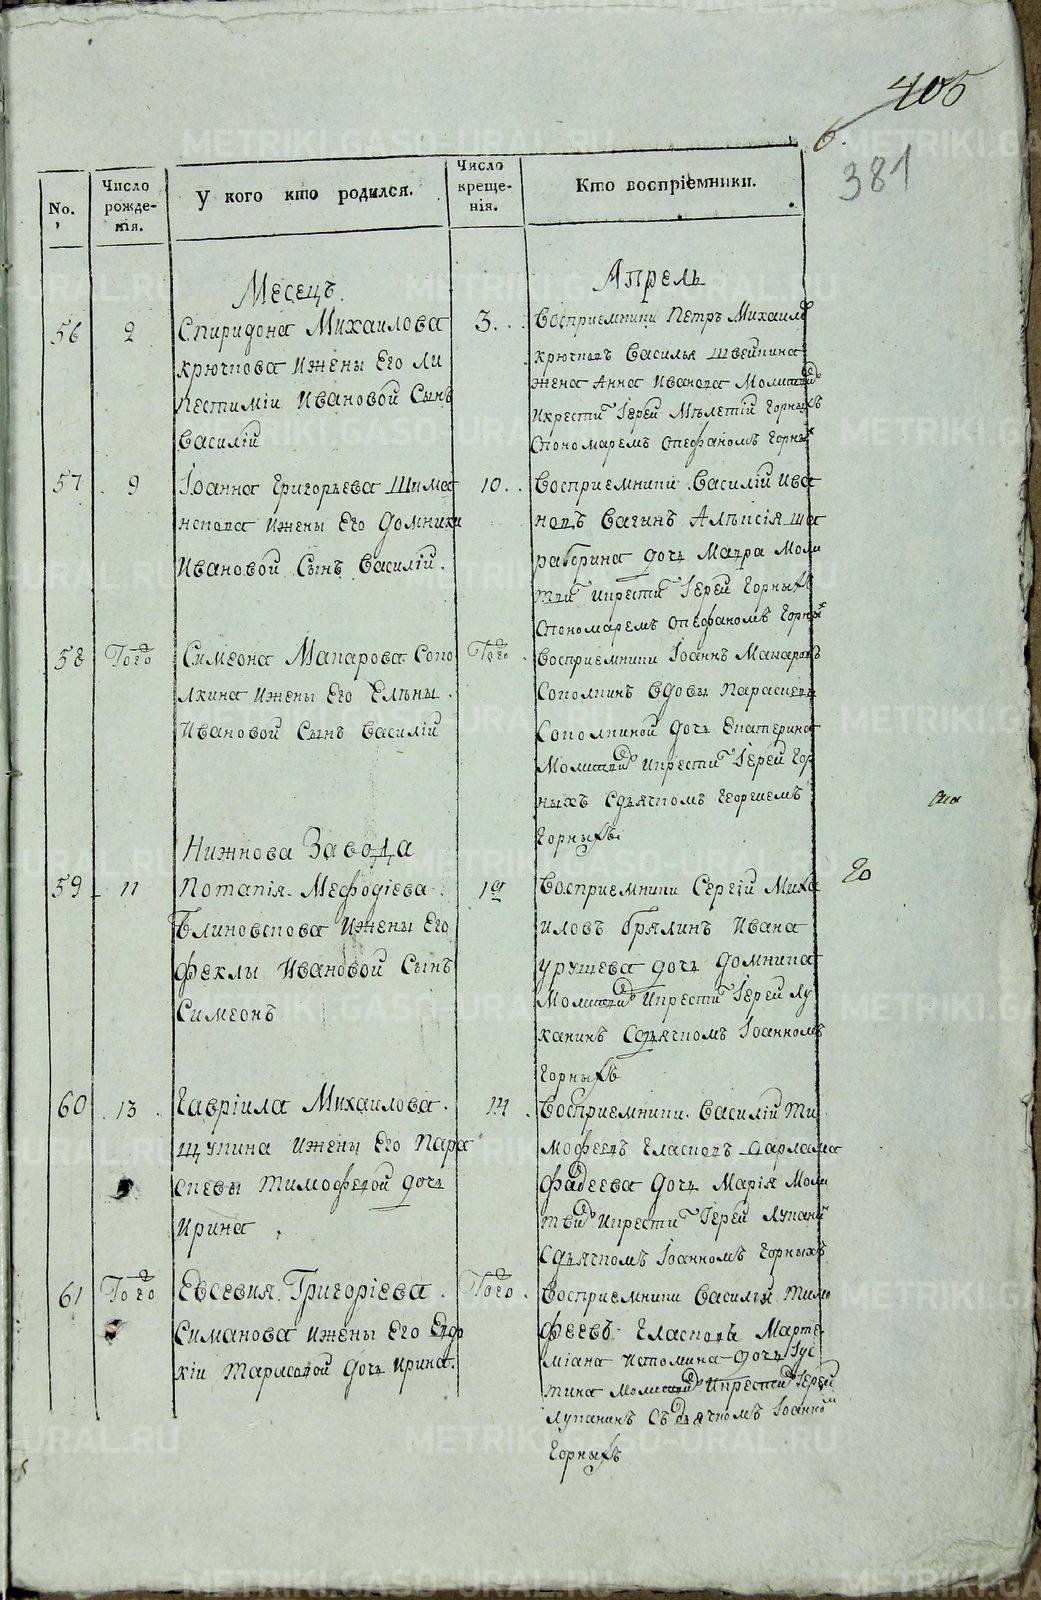 405
6.
381
No.
Число рожде-нія.
У кого кто родился.
Число креще-нія.
Кто воспріемники.
Месецъ
Апрель
56
2
Спиридона Михаилова
крючкова Ижены Его ли
пестиміи Ивановой Сынъ
Василій
3.
Восприемники Петръ Михаилов
крючковъ Василья Швейкина
жена Анна Иванова Молитвов
Икрести Іерей Мѣлетій Горныхъ
Спономаремъ Стефаномъ Горных
57
9
Іоанна Григорьева Шима
новова Ижены Его Домники
Ивановой Сынъ Василій.
10.
Восприемники Василій Ива
новъ Вагинъ Алѣксія ша
рабрина дочь Мавра Моли
твов Икрести Іерей Горныхъ
Спономаремъ Стефаномъ Горных
58
Того
Симеона Макарова Соко
лкина Ижены Его Елѣны
Ивановой Сынъ Василій
Того
Восприемники Іоаннъ Макаровъ
Соколкинъ Вдовы Параскевы
Соколкиной дочь Екатерина
Молитвов Икрести Іерей Гор
ныхъ Сдьячкомъ Георгиемъ
Горныхъ
Нижнова Завода
59
11
Потапія Мефодіева
Блиновскова Ижены Его
Феклы Ивановой Сынъ
Симеонъ
19
Восприемники Сергій Миха
иловъ Брялинъ Ивана
Урушева дочь Домника
Молитвов Икрести Іерей Лу
канинъ Сдьячкомъ Іоанномъ
Горныхъ
20
60
13
Гавріила Михаилова
щукина Ижены Его Пара
скевы Тимофевой дочь
Ирина
14
Восприемники Василій Ти
мофеевъ Гласковъ Варлама
Фадеева дочь Марія Моли
твов Икрести Іерей Лукани
Сдьячкомъ Іоанномъ Горныхъ
61
Того
Евсевия Григоріева
Симанова Ижены Его Евдо
кіи Тарасовой дочь Ирина.
Того
Восприемники Василія Тимо
феевъ Гласковъ Марте
міана Истомина дочь Іус
тина Молитвов Икрести Іерей
Луканинъ Съдьячкомъ Іоанно
Горныхъ